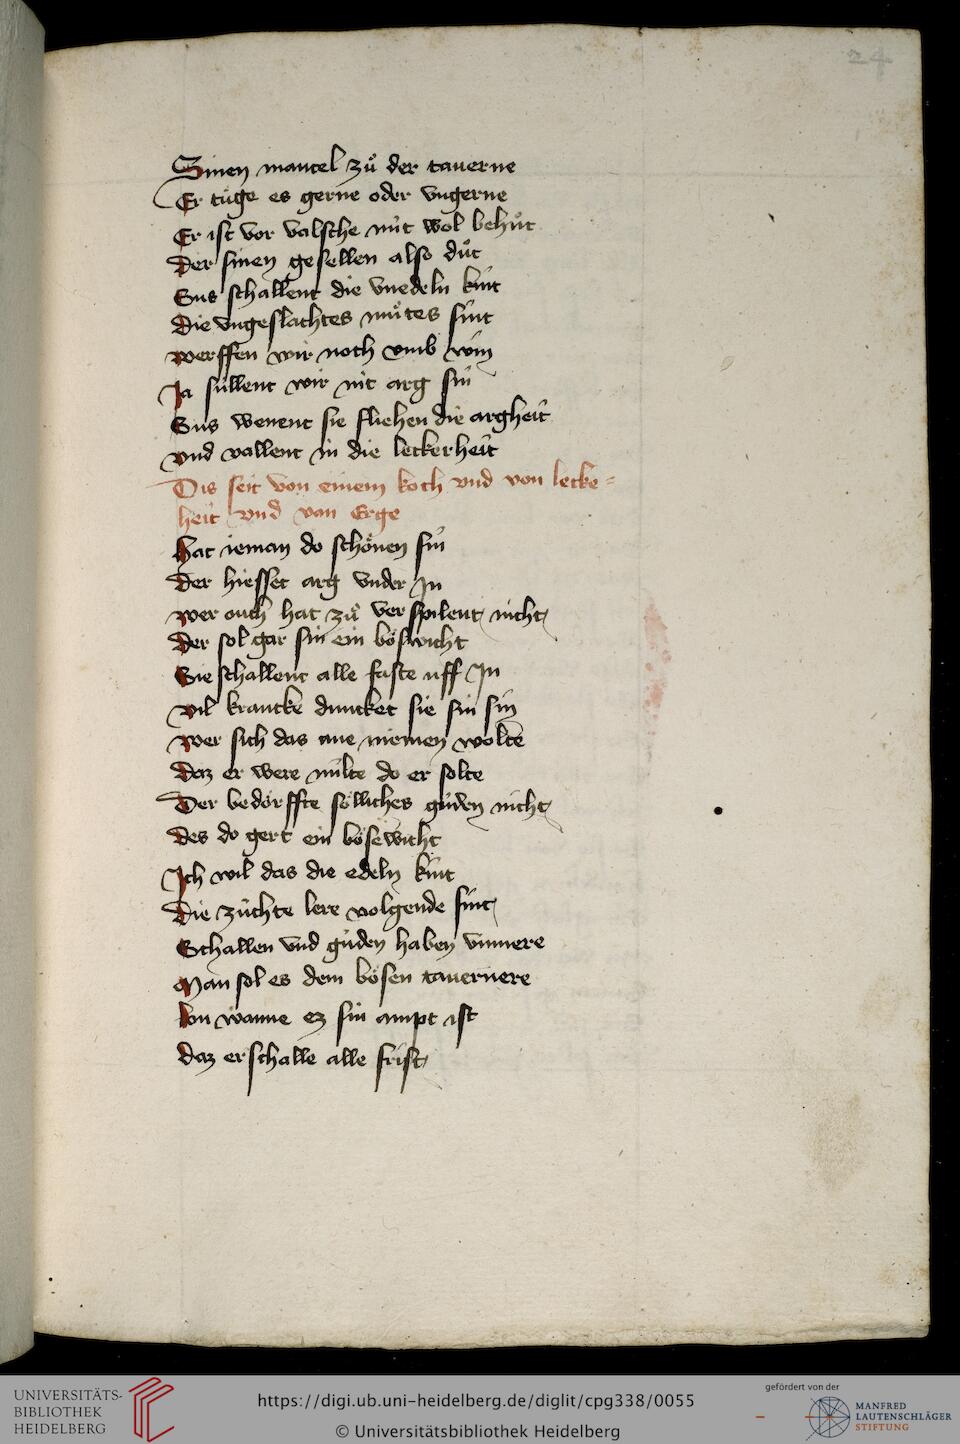 24
Sinen mantel zuͦ der tauerne
Er tuͤge es gerne oder vngerne
Er ist vor valsche nuͤt wol behuͦt
Der sinen gesellen also duͦt
Sus schallent die vnedeln kint
Die vngeslachtes muͦtes sint
Werffen wir noch vmb win
Ja suͤllent wir nit arg sin
Sus wenent sie fliehen die argheit
Vnd vallent in die leckerheit
Dis seit von einem koch vnd von lecke=
heit vnd von Erge
Hat ieman do schoͤnen sin
Der hiesset arg vnder In
Wer ouch hat zuͦ verspilent nicht
Der sol gar sin ein boͤswicht
Sie schallent alle faste uff In
Vil krancke duncket sie sin sin
Wer sich das ane niemen wolte
Daz er were milte do er solte
Der bedoͤrffte soͤlliches guͤden nicht
Des do gert ein boͤsewicht
Ich wil das die edeln kint
Die zuͤchte lere volgende sint
Schallen vnd guͤden haben vnmere
Man sol es dem boͤsen tauernere
Von wanne ez sin ampt ist
Daz er schalle alle frist
UNIVERSITÄTS-
BIBLIOTHEK
HEIDELBERG
https://digi.ub.uni-heidelberg.de/diglit/cpg338/0055
© Universitätsbibliothek Heidelberg
gefördert von der
MANFRED
LAUTENSCHLÄGER
STIFTUNG